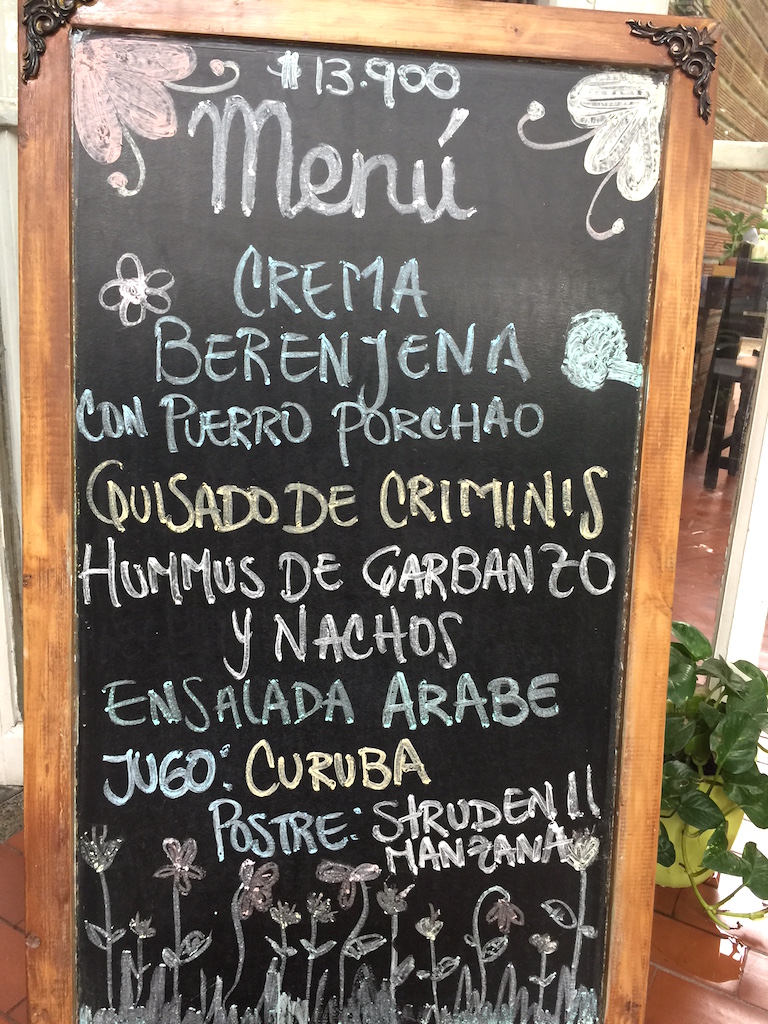 $13.900
Menú
CREMA
BERENJENA
CON PUERRO PORCHAO
GUISADO DE CRIMINIS
HUMMUS DE GARBANZO
Y NACHOS
ENSALADA ARABE
JUGO: CURUBA
POSTRE: STRUDEN !!
MANZANA